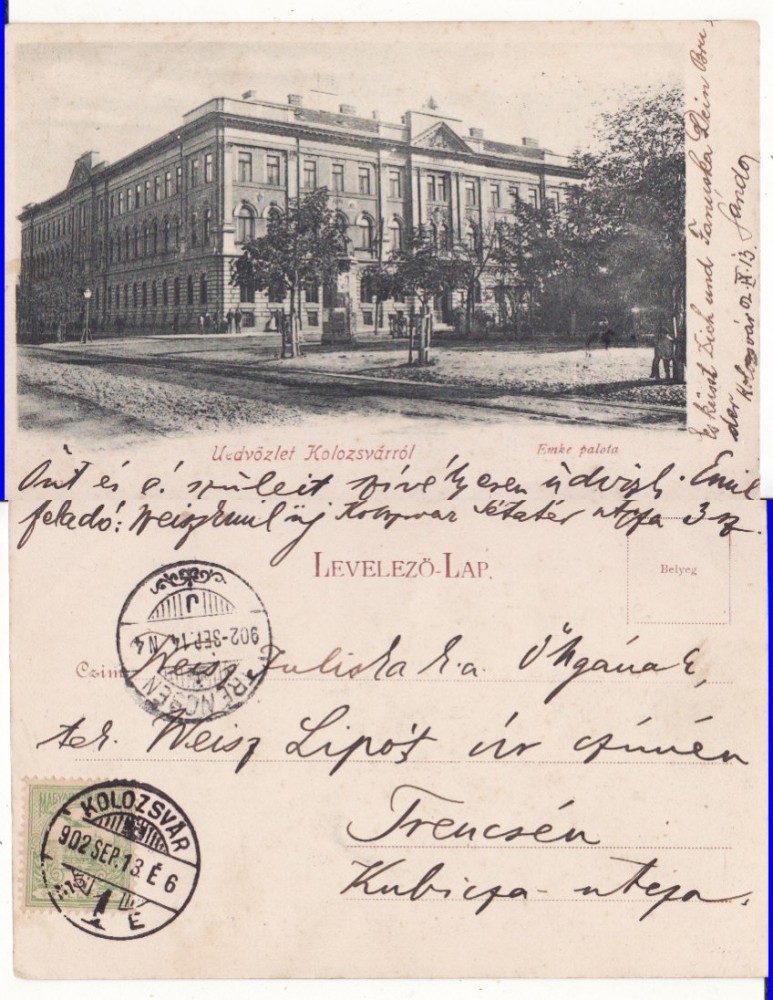 Es küsst Dich und Fanuska Dein Bru-
der Sándor
Kolozsvár 02. IX. 13.
Üdvözlet Kolozsvárról
Emke palota
Önt és szüleit szívélyesen üdvözli Emil
feladó: Weisz Emil Kolozsvár Sétatér utcza 3 sz.
LEVELEZŐ-LAP.
Belyeg
J
902-SEP.14 N4
TRENCSÉN
Czim
Weisz Juliska k.a. Ő Ngának,
tek. Weisz Lipót úr czímén
Trencsén
Kubicza-utcza.
MAGYAR
KOLOZSVÁR
902 SEP.13.É 6
E